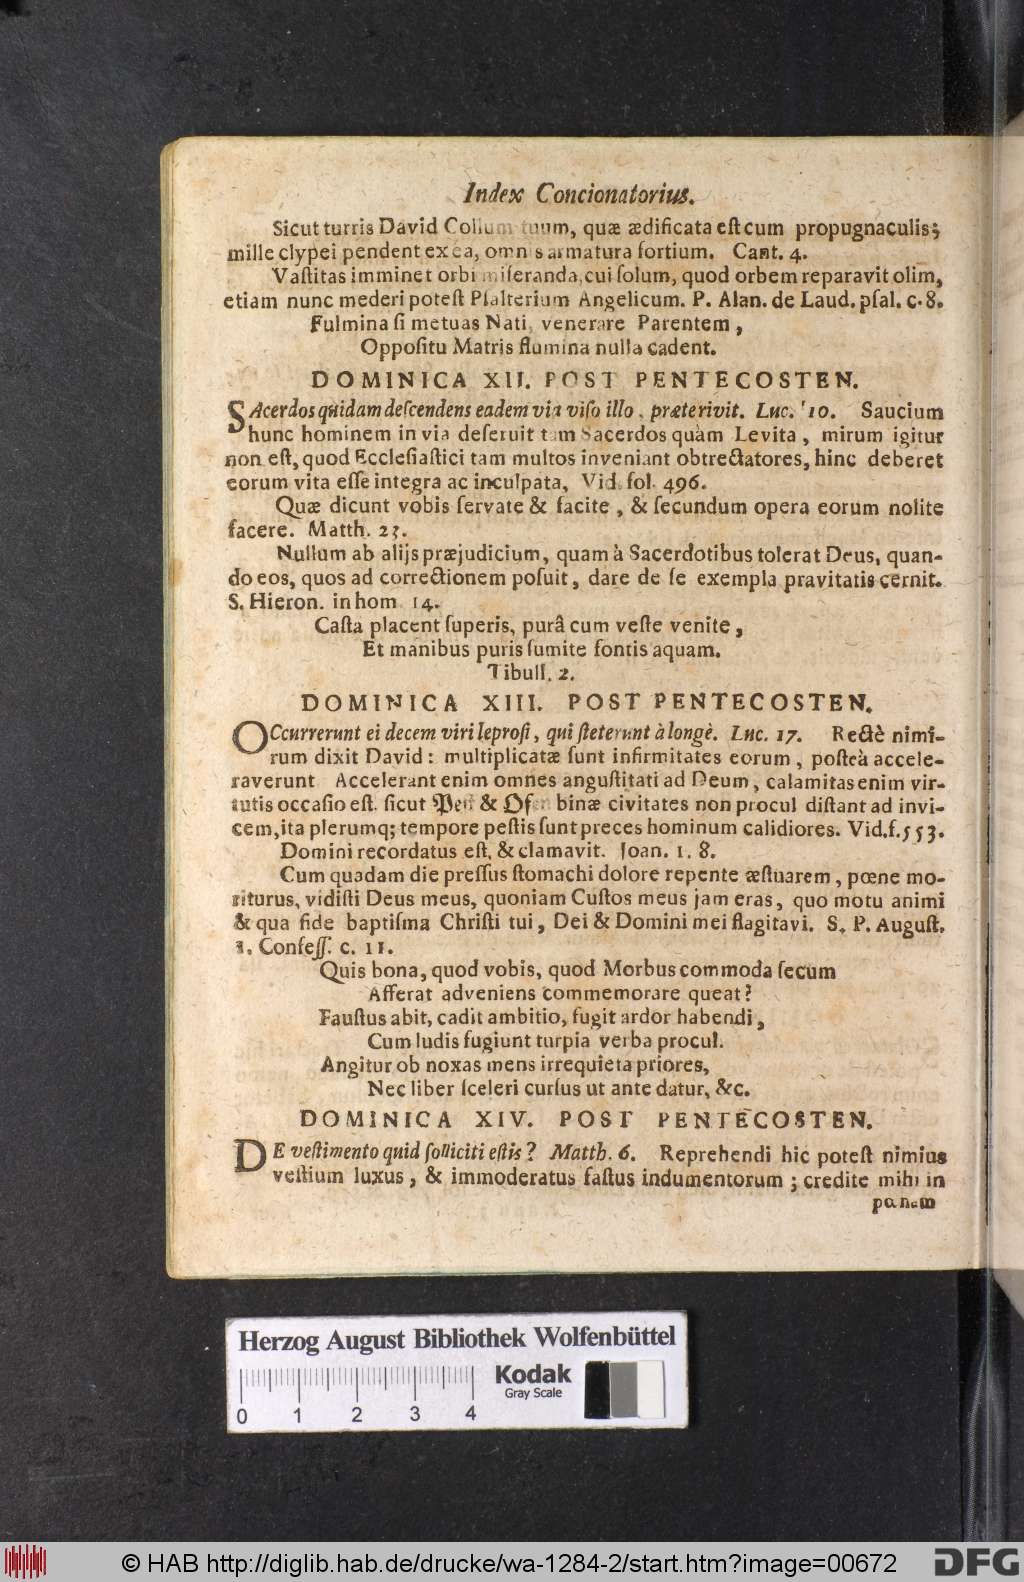 Index Concionatorius.
Sicut turris David Collum tuum, quæ ædificata eſt cum propugnaculis;
mille clypei pendent ex ea, omnis armatura fortium. Cant. 4.
Vaſtitas imminet orbi miſeranda, cui ſolum, quod orbem reparavit olim,
etiam nunc mederi poteſt Pſalterium Angelicum. P. Alan. de Laud. pſal. c. 8.
Fulmina ſi metuas Nati, venerare Parentem,
Oppoſitu Matris flumina nulla cadent.
DOMINICA XII. POST PENTECOSTEN.
SAcerdos quidam deſcendens eadem via viſo illo, præterivit. Luc. 10. Saucium
hunc hominem in via deſeruit tam Sacerdos quàm Levita, mirum igitur
non eſt, quod Eccleſiaſtici tam multos inveniant obtrectatores, hinc deberet
eorum vita eſſe integra ac inculpata, Vid. fol. 496.
Quæ dicunt vobis ſervate & facite, & ſecundum opera eorum nolite
facere. Matth. 23.
Nullum ab alijs præjudicium, quam à Sacerdotibus tolerat Deus, quan-
do eos, quos ad correctionem poſuit, dare de ſe exempla pravitatis cernit.
S. Hieron. in hom. 14.
Caſta placent ſuperis, purâ cum veſte venite,
Et manibus puris ſumite fontis aquam.
Tibull. 2.
DOMINICA XIII. POST PENTECOSTEN.
OCcurrerunt ei decem viri leproſi, qui ſteterunt à longè. Luc. 17. Rectè nimi-
rum dixit David: multiplicatæ ſunt infirmitates eorum, poſteà accele-
raverunt Accelerant enim omnes anguſtitati ad Deum, calamitas enim vir-
tutis occaſio eſt. ſicut Peſt & Ofen binæ civitates non procul diſtant ad invi-
cem, ita plerumq; tempore peſtis ſunt preces hominum calidiores. Vid. f. 553.
Domini recordatus eſt, & clamavit. Joan. 1. 8.
Cum quadam die preſſus ſtomachi dolore repente æſtuarem, pœne mo-
riturus, vidiſti Deus meus, quoniam Cuſtos meus jam eras, quo motu animi
& qua fide baptiſma Chriſti tui, Dei & Domini mei flagitavi. S. P. Auguſt.
1. Confeſſ. c. 11.
Quis bona, quod vobis, quod Morbus commoda ſecum
Afferat adveniens commemorare queat?
Fauſtus abit, cadit ambitio, fugit ardor habendi,
Cum ludis fugiunt turpia verba procul.
Angitur ob noxas mens irrequieta priores,
Nec liber ſceleri curſus ut ante datur, &c.
DOMINICA XIV. POST PENTECOSTEN.
DE veſtimento quid ſolliciti eſtis? Matth. 6. Reprehendi hic poteſt nimius
veſtium luxus, & immoderatus faſtus indumentorum; credite mihi in
panem
Herzog August Bibliothek Wolfenbüttel
Kodak
Gray Scale
0 1 2 3 4
© HAB http://diglib.hab.de/drucke/wa-1284-2/start.htm?image=00672
DFG